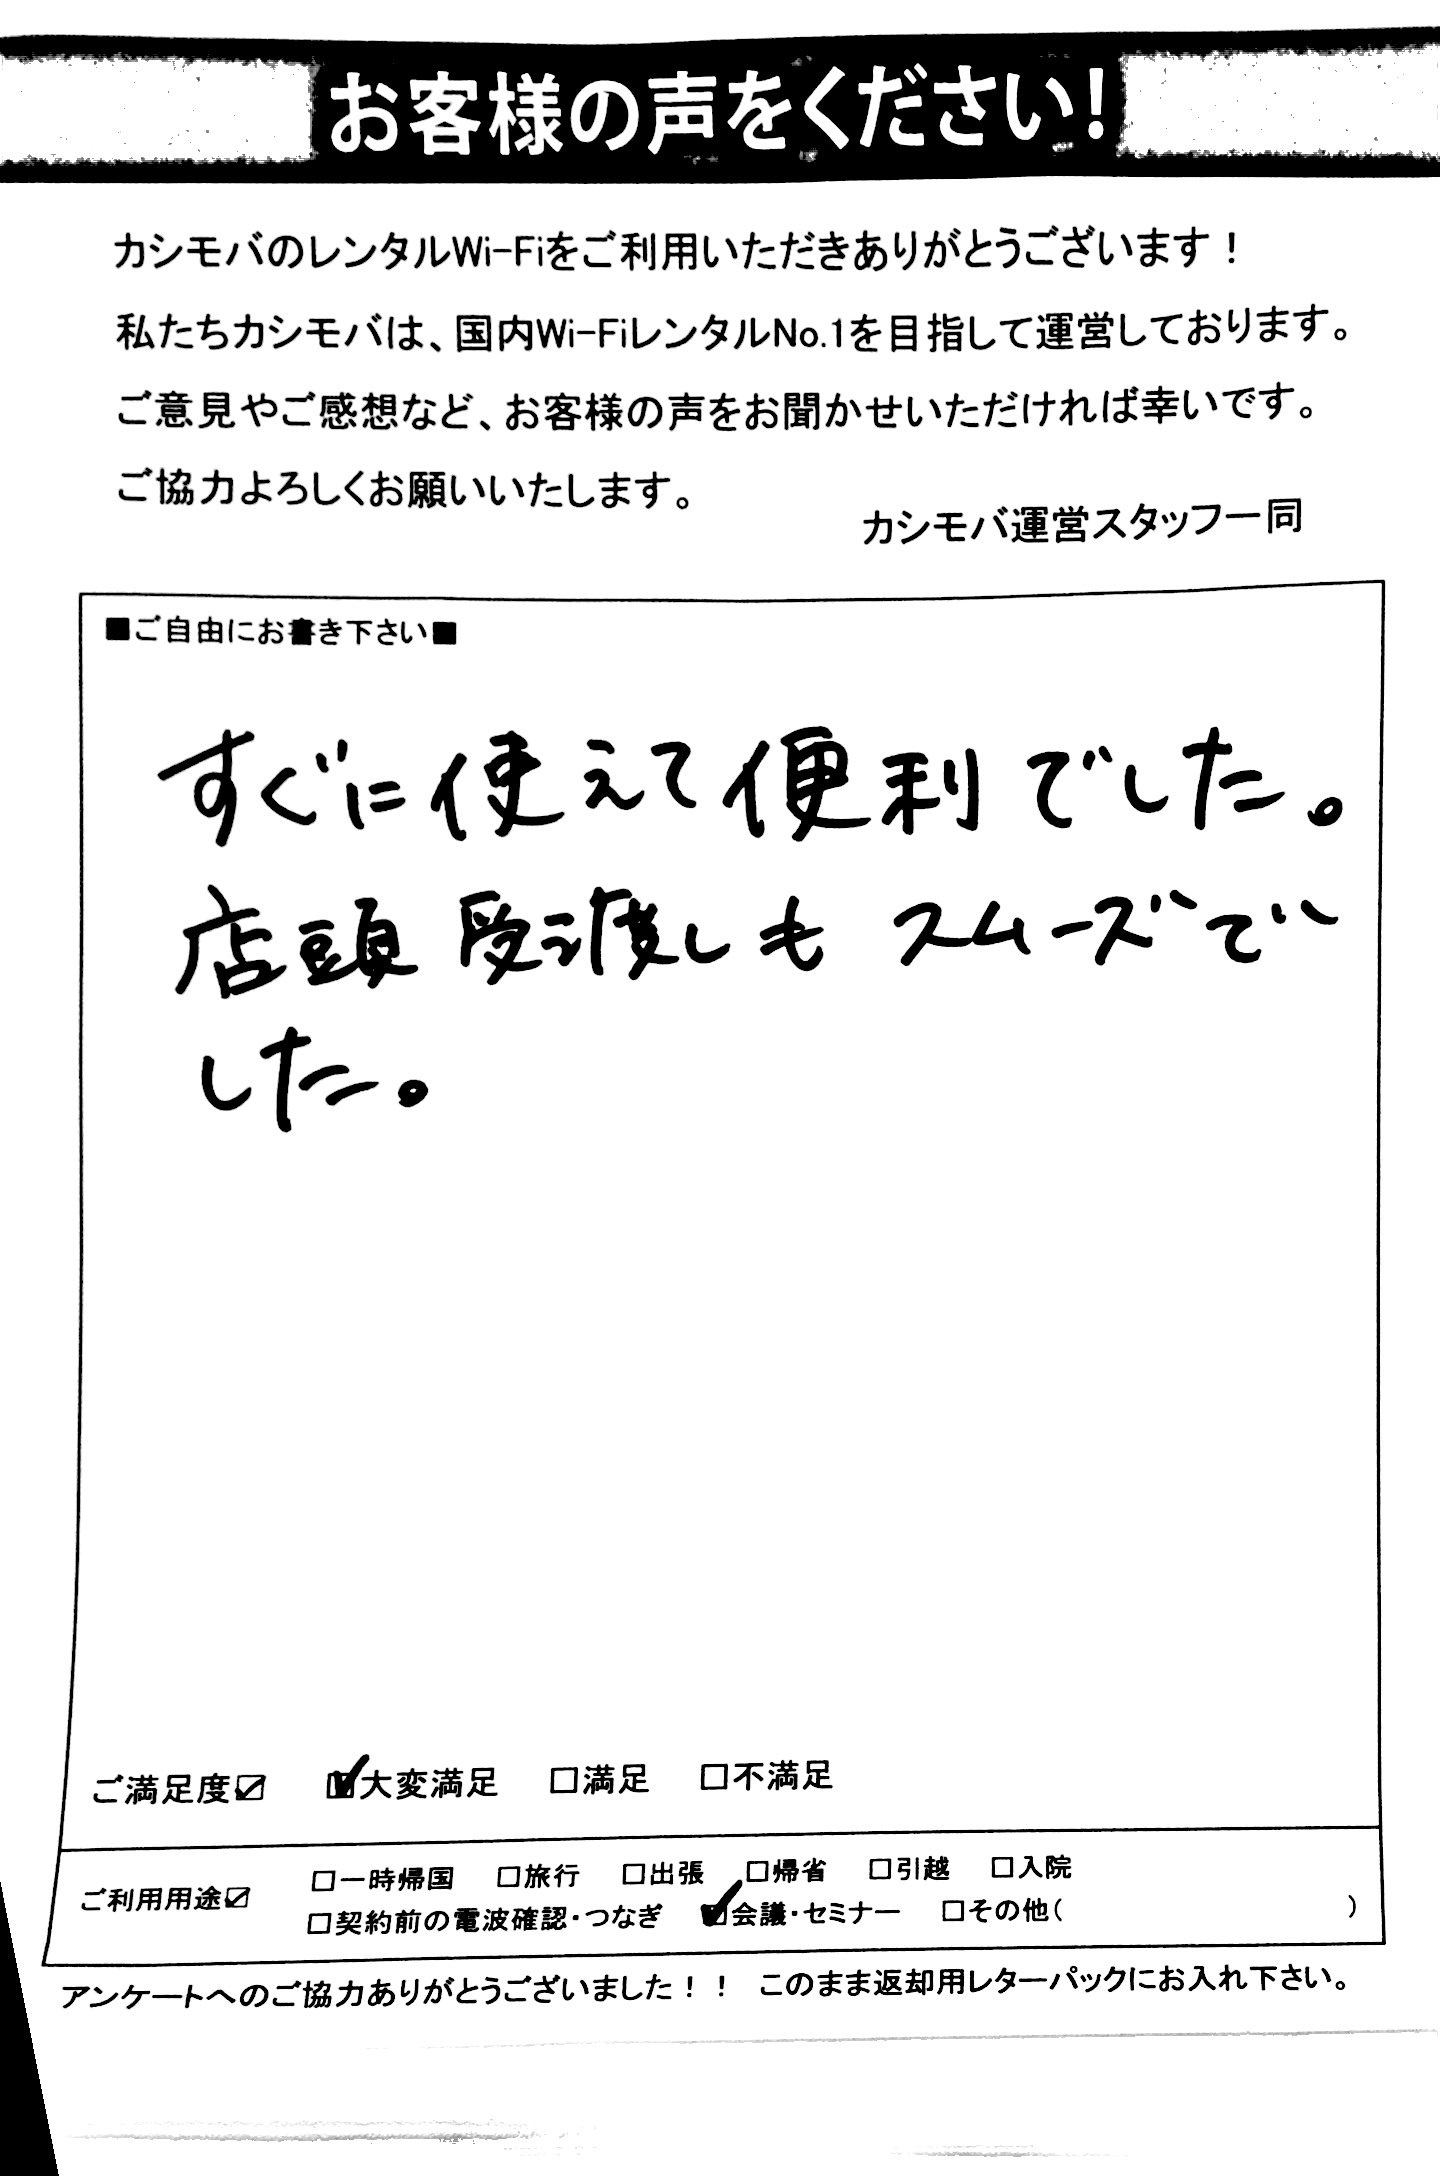 お客様の声をください!
カシモバのレンタルWi-Fiをご利用いただきありがとうございます！
私たちカシモバは、国内Wi-FiレンタルNo.1を目指して運営しております。
ご意見やご感想など、お客様の声をお聞かせいただければ幸いです。
ご協力よろしくお願いいたします。
カシモバ運営スタッフ一同
■ご自由にお書き下さい■
すぐに使えて便利でした。
店頭受渡しもスムーズで
した。
ご満足度☑ ☑大変満足 □満足 □不満足
ご利用用途☑ □一時帰国 □旅行 □出張 □帰省 □引越 □入院
□契約前の電波確認・つなぎ ☑会議・セミナー □その他( )
アンケートへのご協力ありがとうございました！！ このまま返却用レターパックにお入れ下さい。